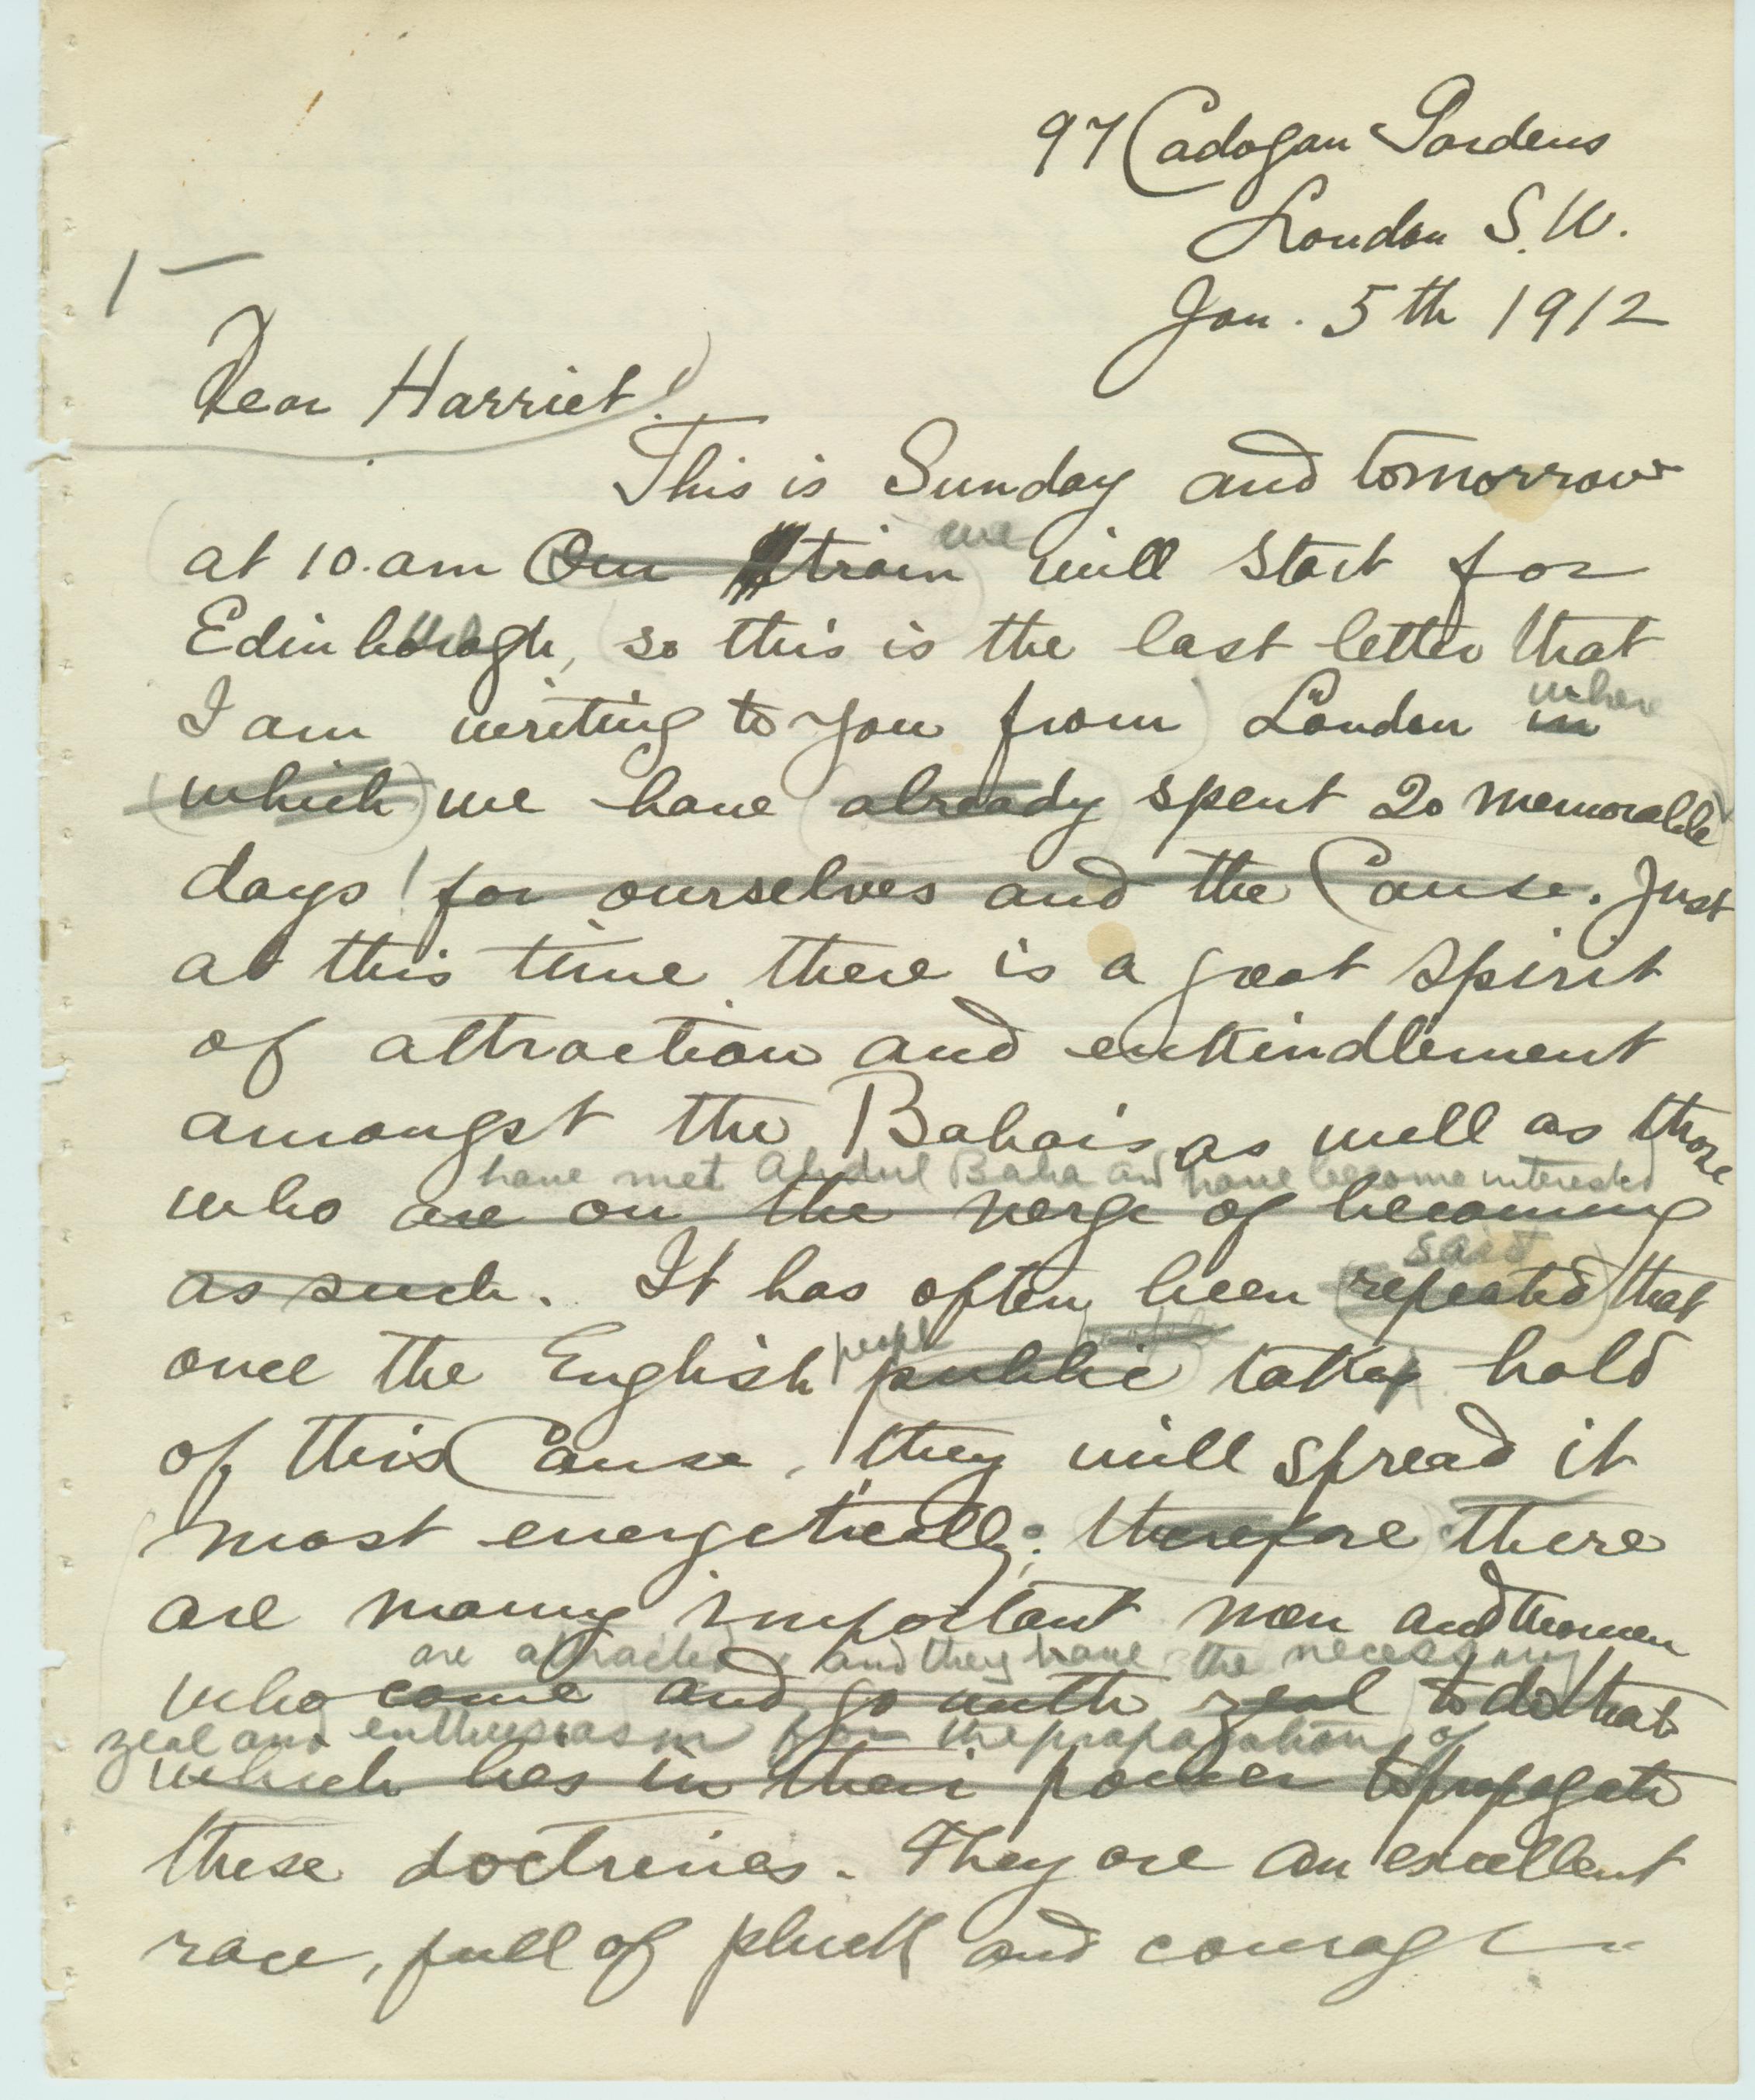 97 Cadogan Gardens
London S.W.
Jan. 5th 1912
1—
Dear Harriet!
This is Sunday and tomorrow
we
at 10. am Our train will start for
Edinborogh, so this is the last letter that
where
I am writing to you from London in
which we have already spent 20 memorable
days! for ourselves and the Cause. Just
at this time there is a great spirit
of attraction and enkindlement
amongst the Bahais as well as those
have met Abdul Baha and have become interested
who are on the verge of becoming
said
as such. It has often been repeated that
people
once the English public takes hold
of this Cause, they will spread it
most energetically; therefore there
are many important men and women
are attracted and they have the necessary
who come and go with zeal to do that
zeal and enthusiasm for the propagation of
which lies in their power to propagate
these doctrines. They are an excellent
race, full of pluck and courage